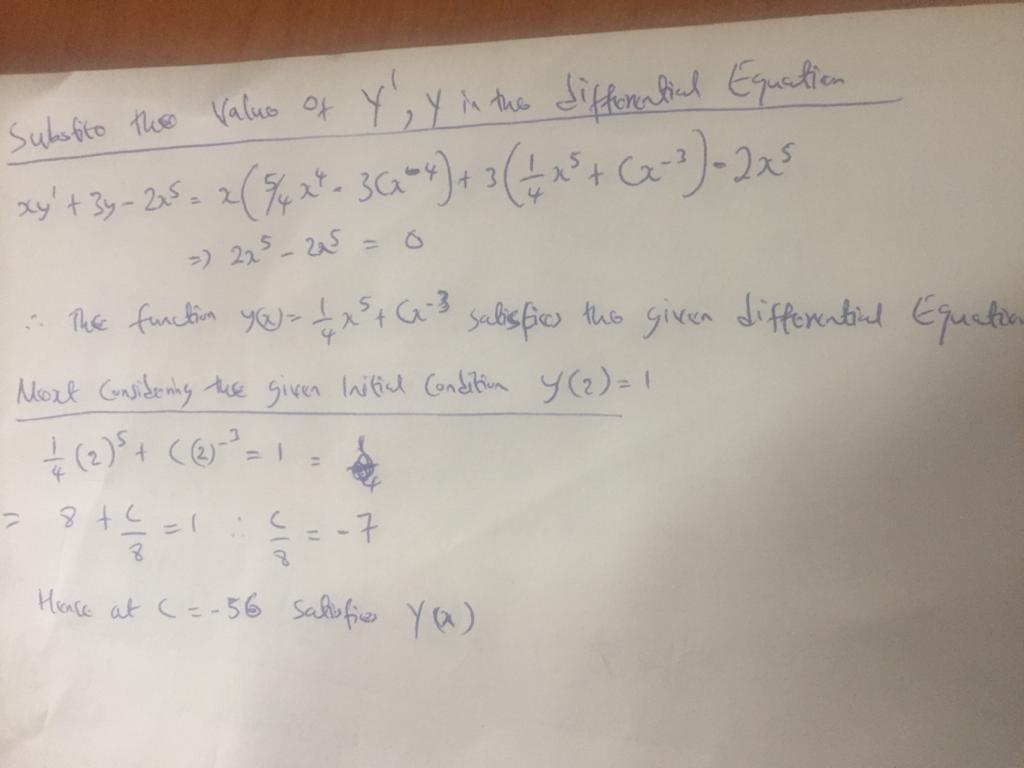 Substito the Value of Y', Y in the differential Equation
xy' + 3y - 2x⁵ = x(5/4 x⁴ - 3Cx⁻⁴) + 3(1/4 x⁵ + Cx⁻³) - 2x⁵
=> 2x⁵ - 2x⁵ = 0
∴ The function y(x) = 1/4 x⁵ + Cx⁻³ satisfies the given differential Equation
Next Considering the given Initial Condition Y(2) = 1
1/4 (2)⁵ + C(2)⁻³ = 1 =
= 8 + C/8 = 1 ∴ C/8 = -7
Hence at C = -56 Satisfies Y(x)